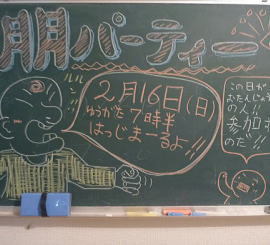 朋パーティー
ルルン
2月16日(日)
ゆうがた7時半
はっじまーるよー!!
この日が
おたんじょう
の人
参加
のだ!!